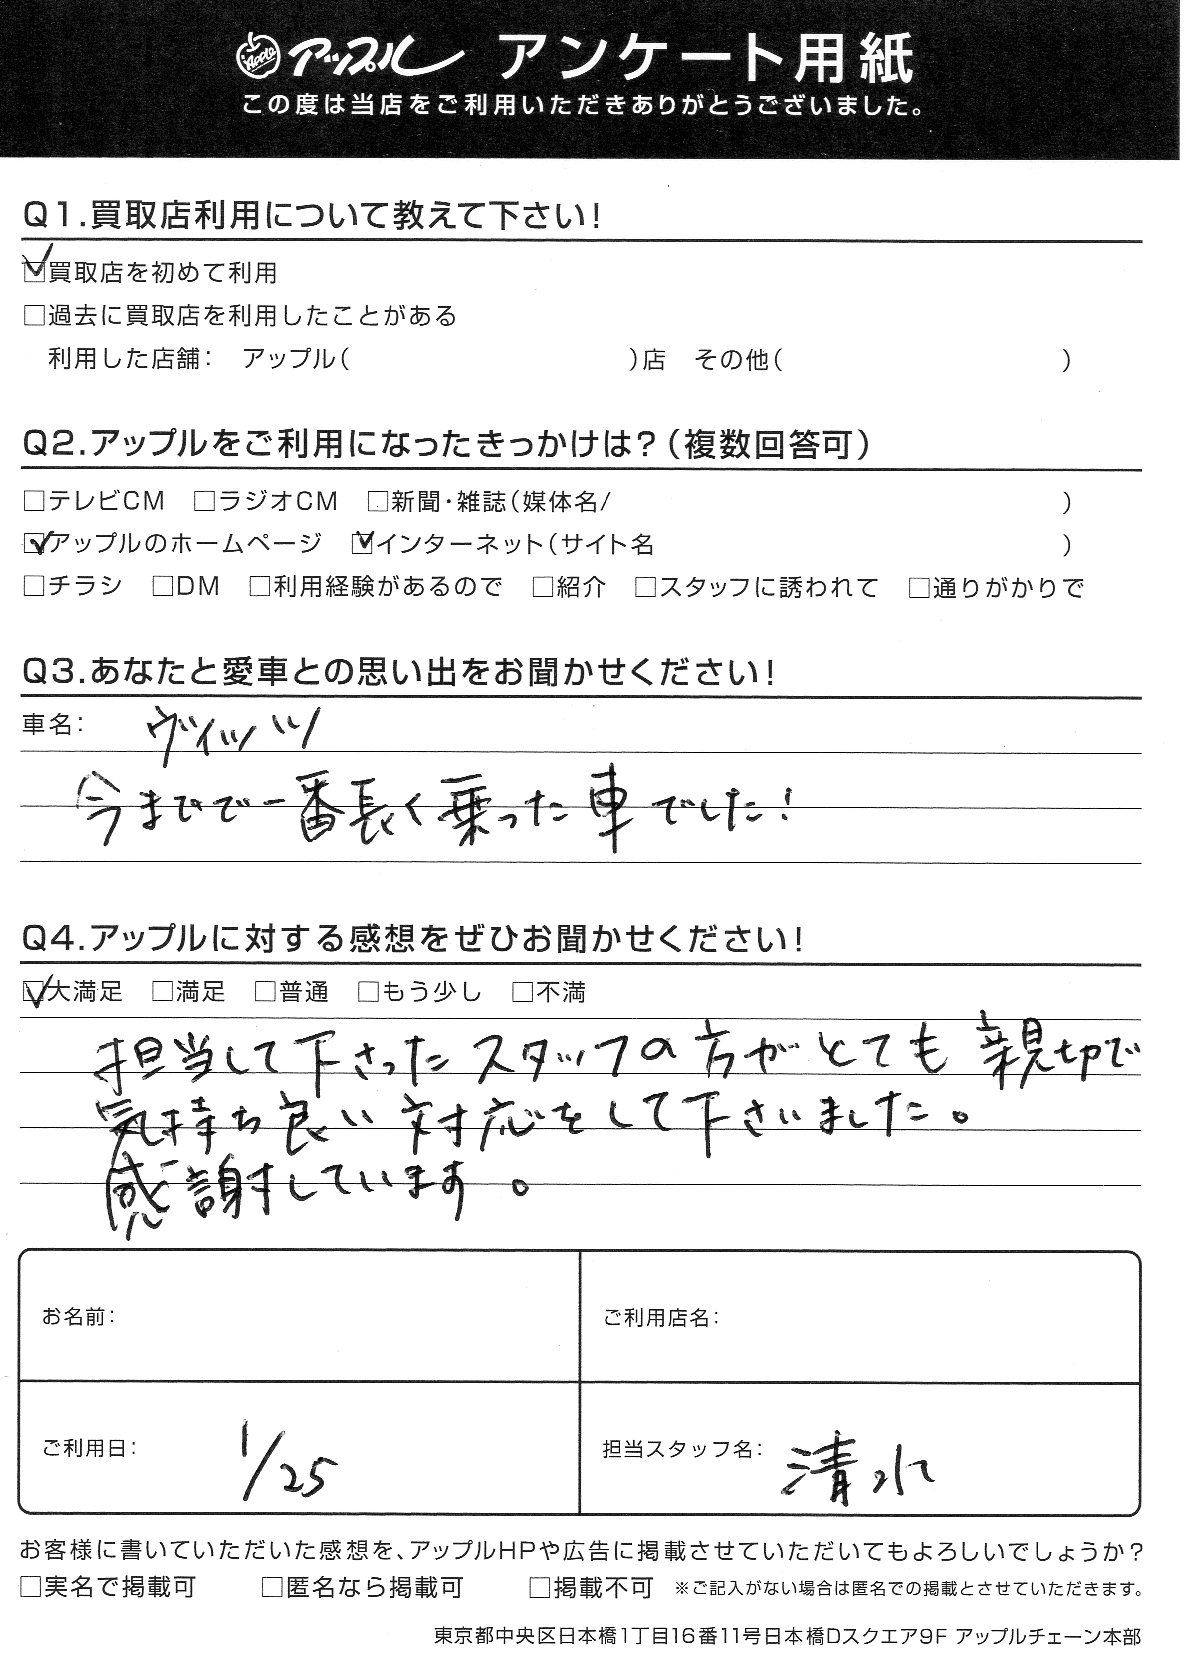 Apple アップル アンケート用紙
この度は当店をご利用いただきありがとうございました。
Q1.買取店利用について教えて下さい!
☑買取店を初めて利用
□過去に買取店を利用したことがある
利用した店舗: アップル( )店 その他( )
Q2.アップルをご利用になったきっかけは?(複数回答可)
□テレビCM □ラジオCM □新聞・雑誌(媒体名/ )
☑アップルのホームページ ☑インターネット(サイト名 )
□チラシ □DM □利用経験があるので □紹介 □スタッフに誘われて □通りがかりで
Q3.あなたと愛車との思い出をお聞かせください!
車名: ヴィッツ
今までで一番長く乗った車でした!
Q4.アップルに対する感想をぜひお聞かせください!
☑大満足 □満足 □普通 □もう少し □不満
担当して下さったスタッフの方がとても親切で
気持ち良い対応をして下さいました。
感謝しています。
お名前: ご利用店名:
ご利用日: 1/25 担当スタッフ名: 清水
お客様に書いていただいた感想を、アップルHPや広告に掲載させていただいてもよろしいでしょうか?
□実名で掲載可 □匿名なら掲載可 □掲載不可 ※ご記入がない場合は匿名での掲載とさせていただきます。
東京都中央区日本橋1丁目16番11号日本橋Dスクエア9F アップルチェーン本部